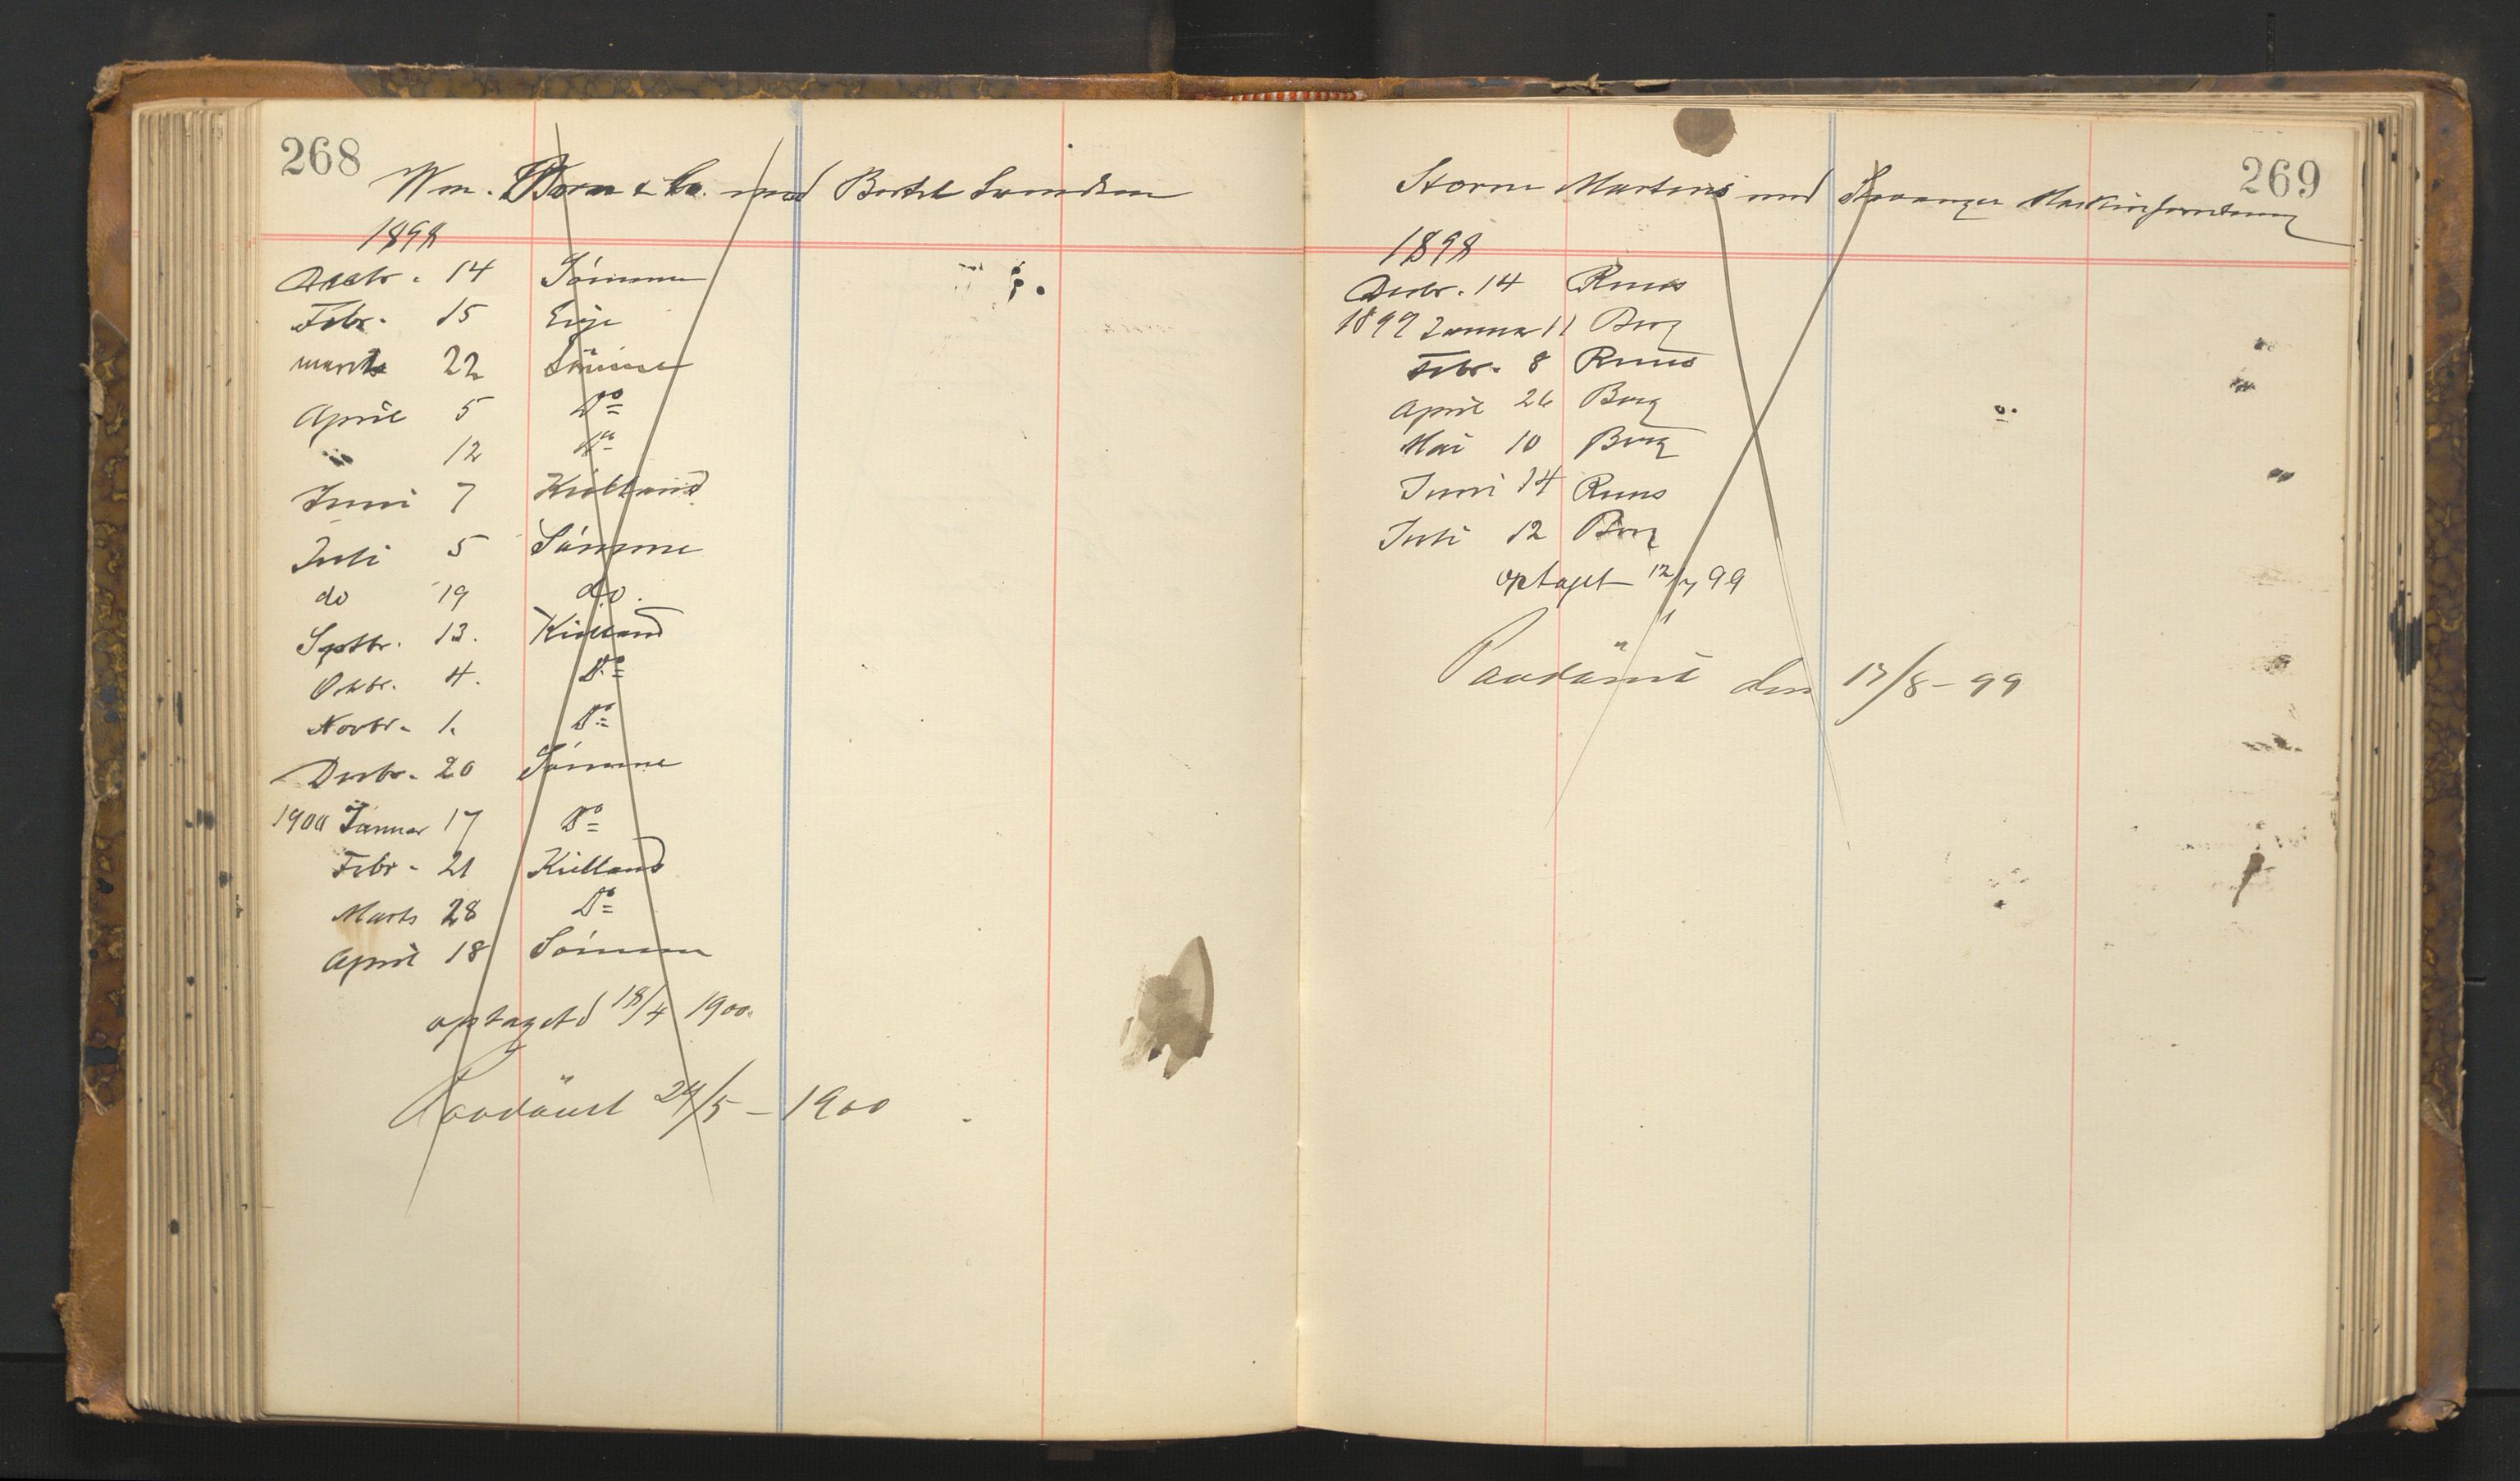 268
Wm. Born & Co. mod Bertel Svendsen
1898
Decbr. 14 Sömme
Febr. 15 Eije
marts 22 Sömme
April 5 Do
" 12 do
Juni 7 Kielland
Juli 5 Sömme
do 19 do.
Septbr. 13. Kielland
Okbr. 4. Do
Novbr. 1. Do
Decbr. 20 Sömme
1900 Januar 17 Do
Febr. 21 Kielland
Marts 28 Do
April 18 Sömme
optaget d 18/4 1900.
Paadömt 24/5 - 1900
269
Storm Martens mod Stavanger Maskinforretning
1898
Decbr. 14 Ruus
1899 Januar 11 Borg
Febr. 8 Ruus
April 26 Borg
Mai 10 Borg
Juni 14 Ruus
Juli 12 Borg
optaget 12/7 99
Paadömt den 17/8 - 99